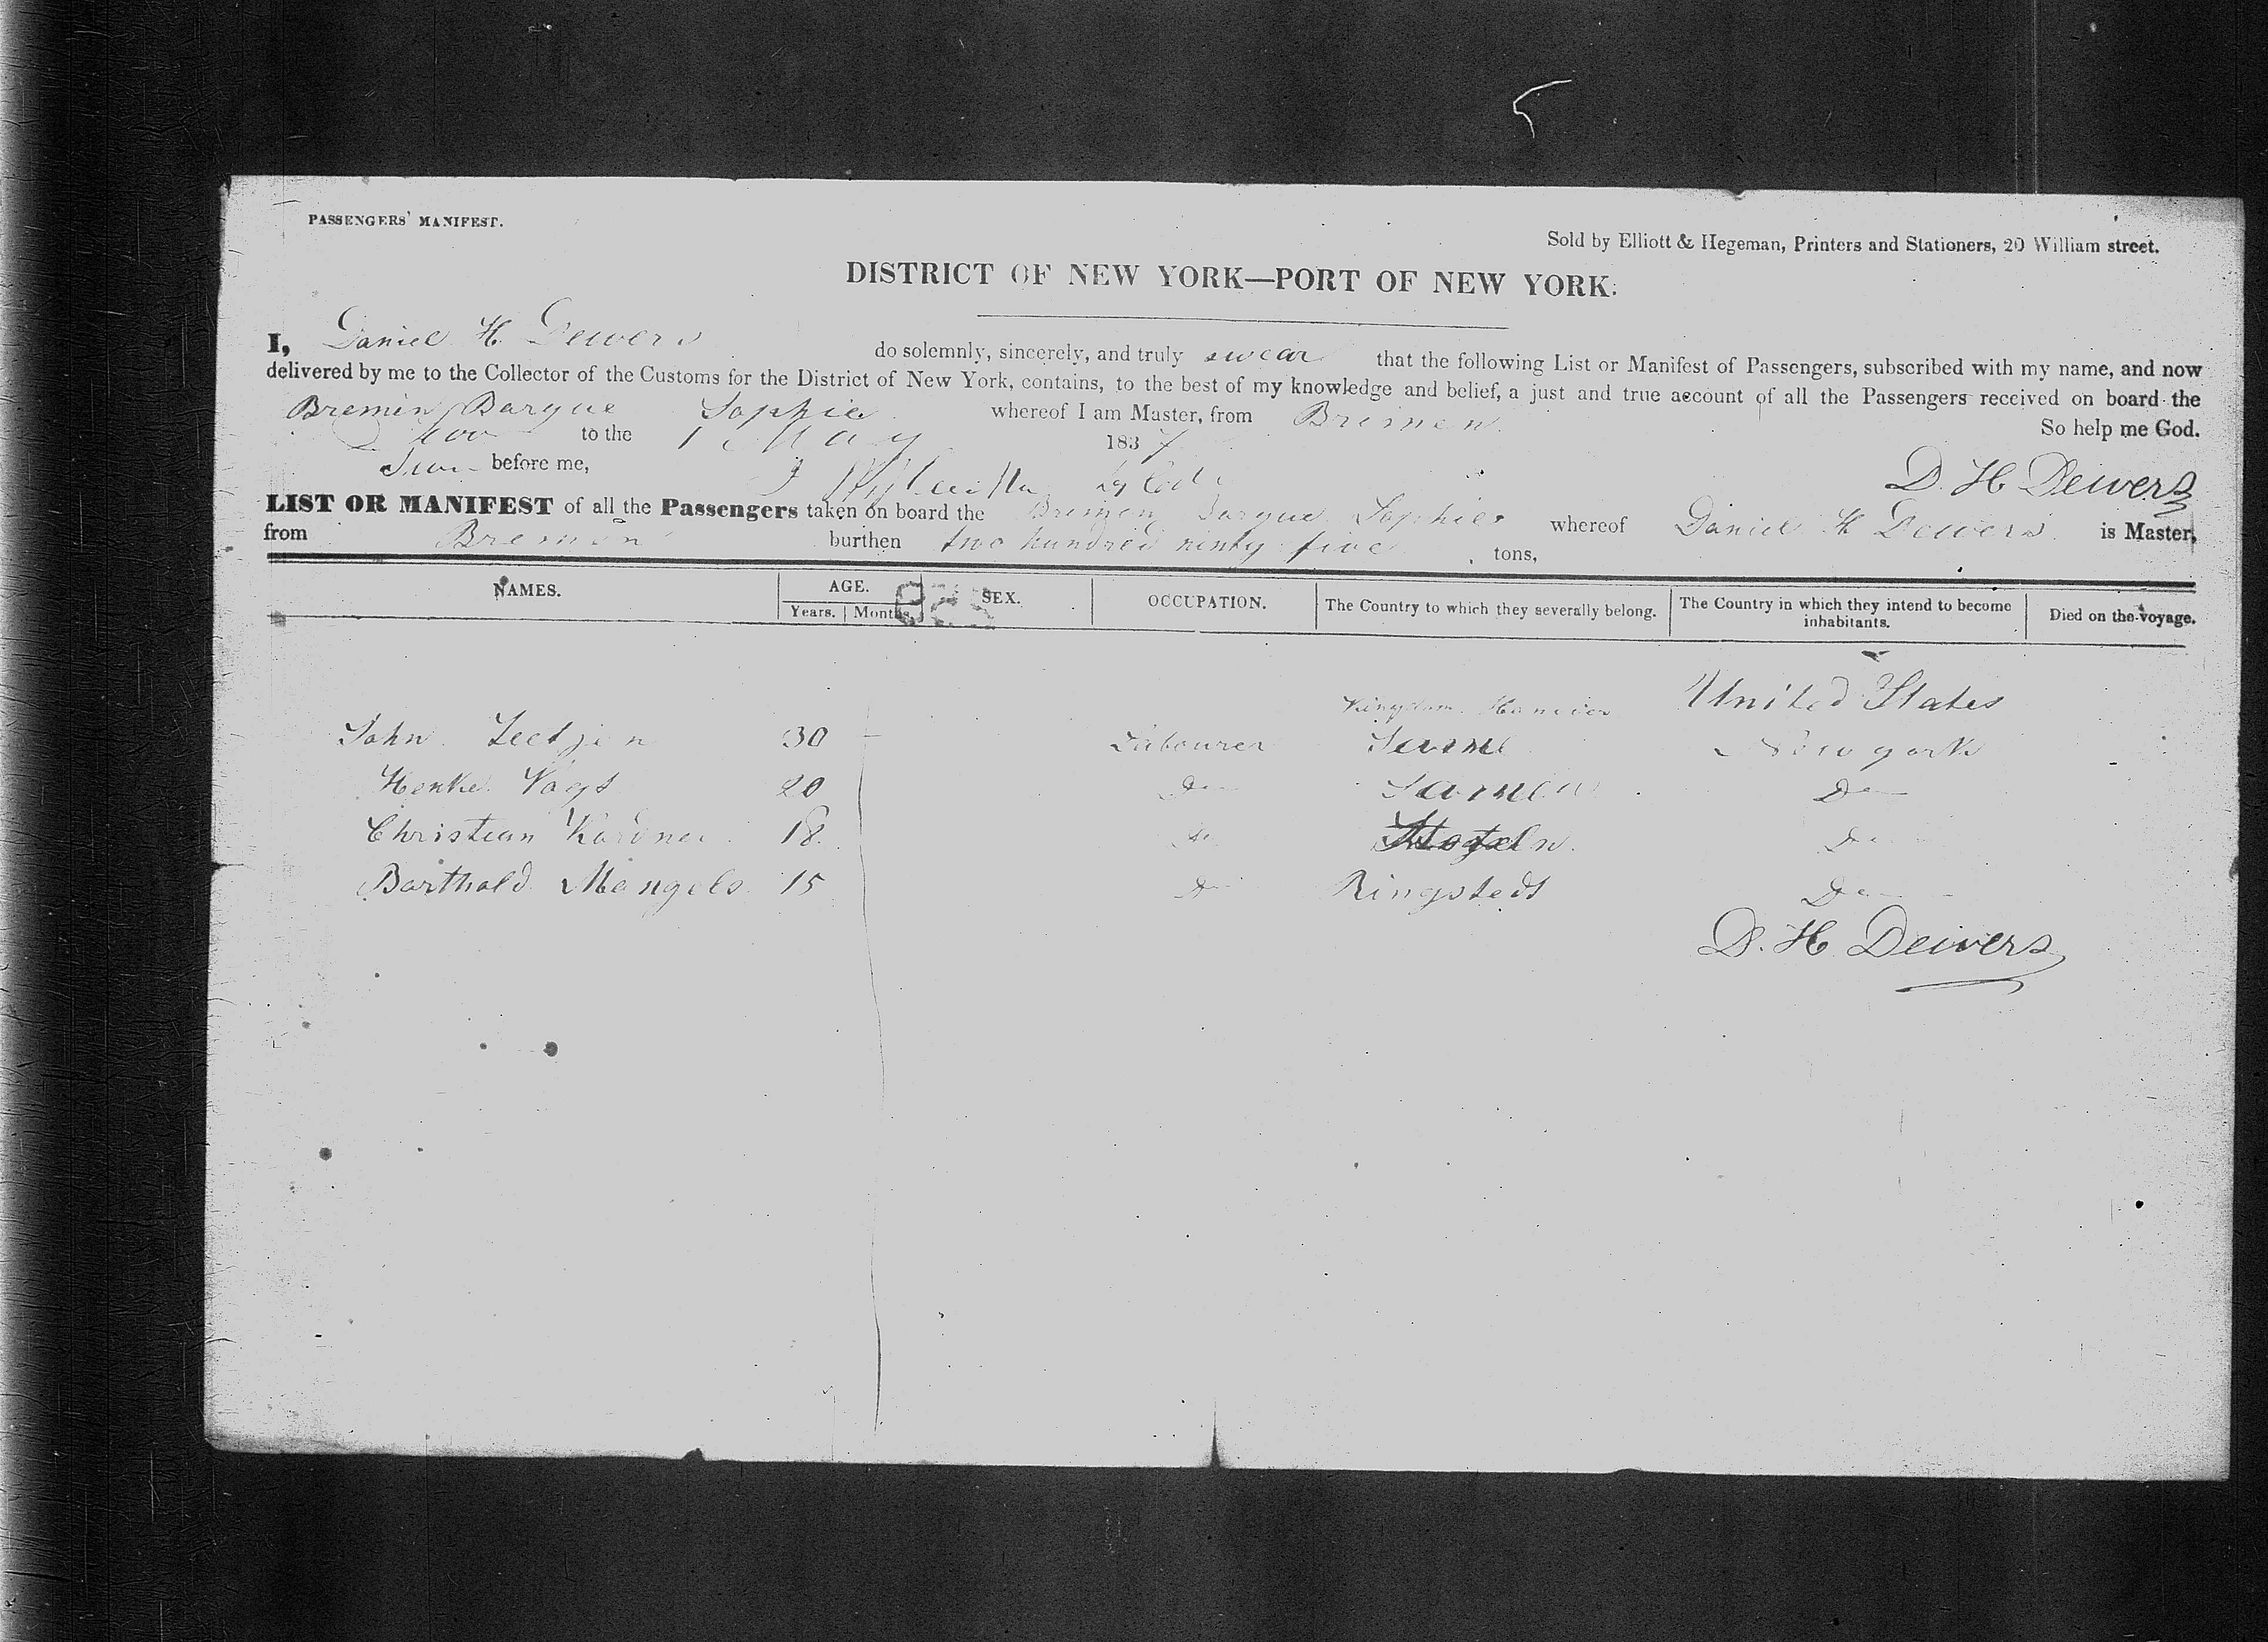 PASSENGERS' MANIFEST.
Sold by Elliott & Hegeman, Printers and Stationers, 20 William street.
DISTRICT OF NEW YORK—PORT OF NEW YORK.
I, Daniel H. Dewers do solemnly, sincerely, and truly swear that the following List or Manifest of Passengers, subscribed with my name, and now
delivered by me to the Collector of the Customs for the District of New York, contains, to the best of my knowledge and belief, a just and true account of all the Passengers received on board the
Bremen Barque Sophie whereof I am Master, from Bremen.
to the 1 May 1837 So help me God.
before me, D. H Dewers
LIST OR MANIFEST of all the Passengers taken on board the Bremen Barque Sophie whereof Daniel H Dewers is Master,
from Bremen burthen two hundred ninty five tons,
NAMES. AGE. SEX. OCCUPATION. The Country to which they severally belong. The Country in which they intend to become inhabitants. Died on the voyage.
Years. Months.
Kingdom Hanover United States
John 30 Labourer New york
Henke Vogt 20 Do Do
Christian 18 Do Do
Barthold Mangels 15 Do Ringstedt Do
D. H Dewers